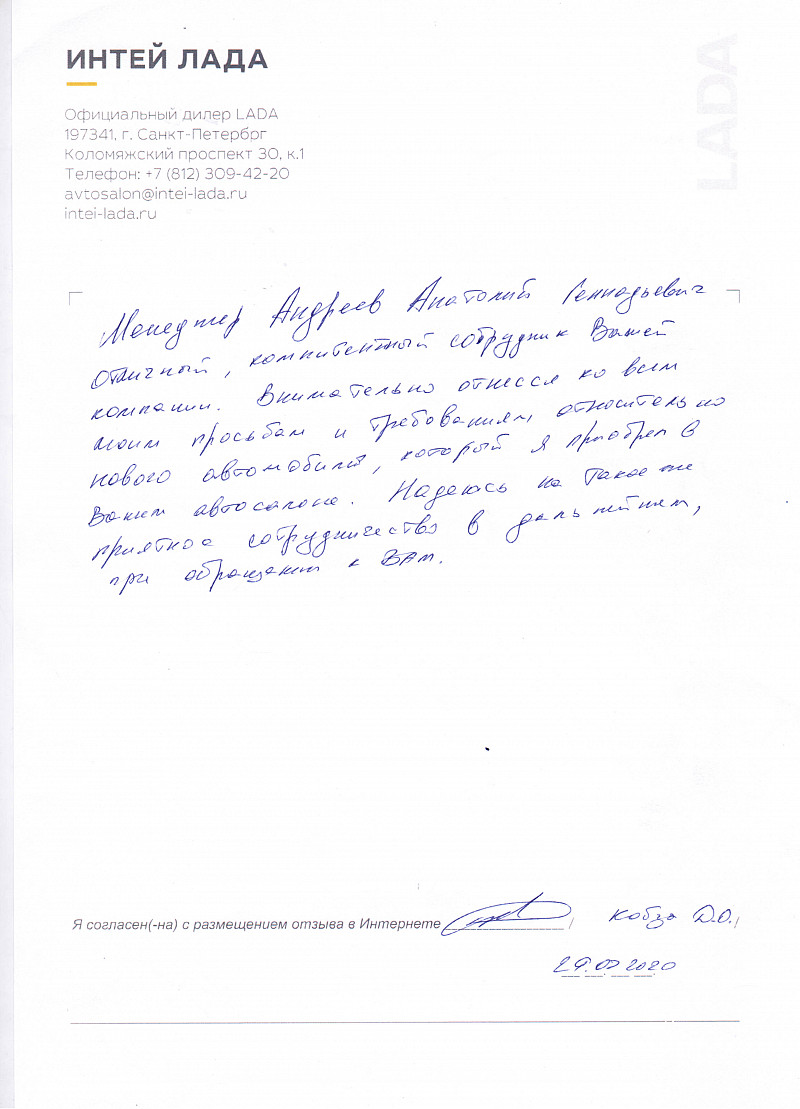 ИНТЕЙ ЛАДА
LADA
Официальный дилер LADA
197341, г. Санкт-Петербрг
Коломяжский проспект 30, к.1
Телефон: +7 (812) 309-42-20
avtosalon@intei-lada.ru
intei-lada.ru
Менеджер Андреев Анатолий Геннадьевич
отличный, компитентный сотрудник Вашей
компании. Внимательно отнесся ко всем
моим просьбам и требованиям, относительно
нового автомобиля, который я приобрел в
Вашем автосалоне. Надеюсь на такое же
приятное сотрудничество в дальнейшем,
при обращении к ВАМ.
Я согласен(-на) с размещением отзыва в Интернете / Кобза Д.О./
2020